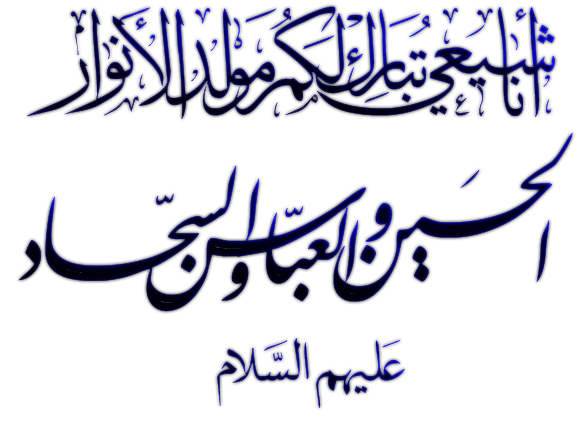 أنا شيعي تبارك لكم مولد الأنوار
الحسين والعباس والسجاد
عليهم السلام